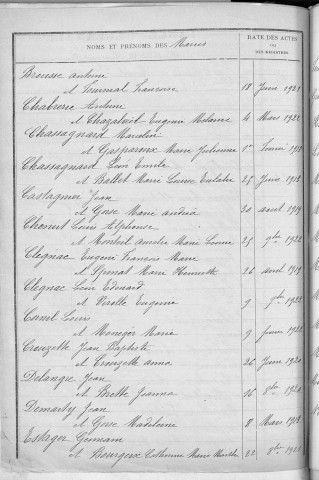 NOMS ET PRÉNOMS DES Mariés
DATE DES ACTES
DES REGISTRES
Brousse Antoine
et Tournal Francoise 18 Juin 1921
Chabrerie Antoine
et Chazalviel Eugenie Melanie 4 Mars 1922
Chassagnard Marcelin
et Gasparoux Marie Julienne 1er 1918
Chassagnard Louis Emile
et Ballet Marie Louise Eulalie 25 Juin 1918
Castagnier Jean
et Gose Marie Andréa 30 aout 1919
Louis Alphonse
et Montal Amelie Marie Louise 25 9bre 1922
Clegnac Eugene François Marie
et Marie Henriette 26 avril 1919
Clegnac Leon Edouard
et Virolle Eugenie 9 7bre 1922
Canel Louis
et Monegor Marie 9 1922
Crouzette Jean Baptiste
et Crouzette Anna 26 Juin 1920
Delangre Jean
et Brette Jeanna 16 8bre 1920
Demarty Jean
et Gose Madeleine 8 Mars 1918
Estager Germain
et Bourgeix Catherine Marie 22 8bre 1921